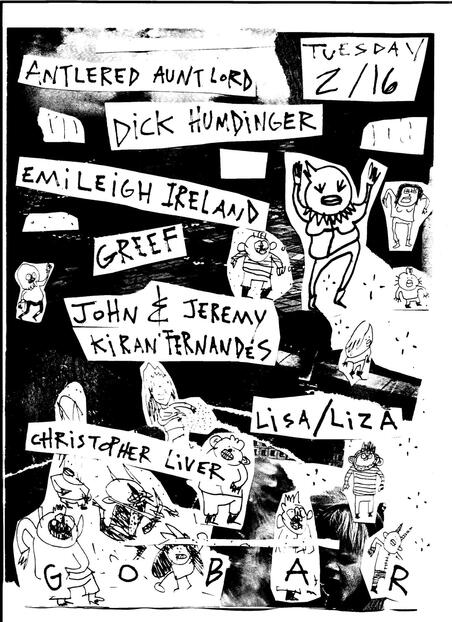 TUESDAY
2/16
ANTLERED AUNT LORD
DICK HUMDINGER
EMILEIGH IRELAND
GREEF
JOHN & JEREMY
KIRAN FERNANDES
LISA/LIZA
CHRISTOPHER LIVER
GO BAR